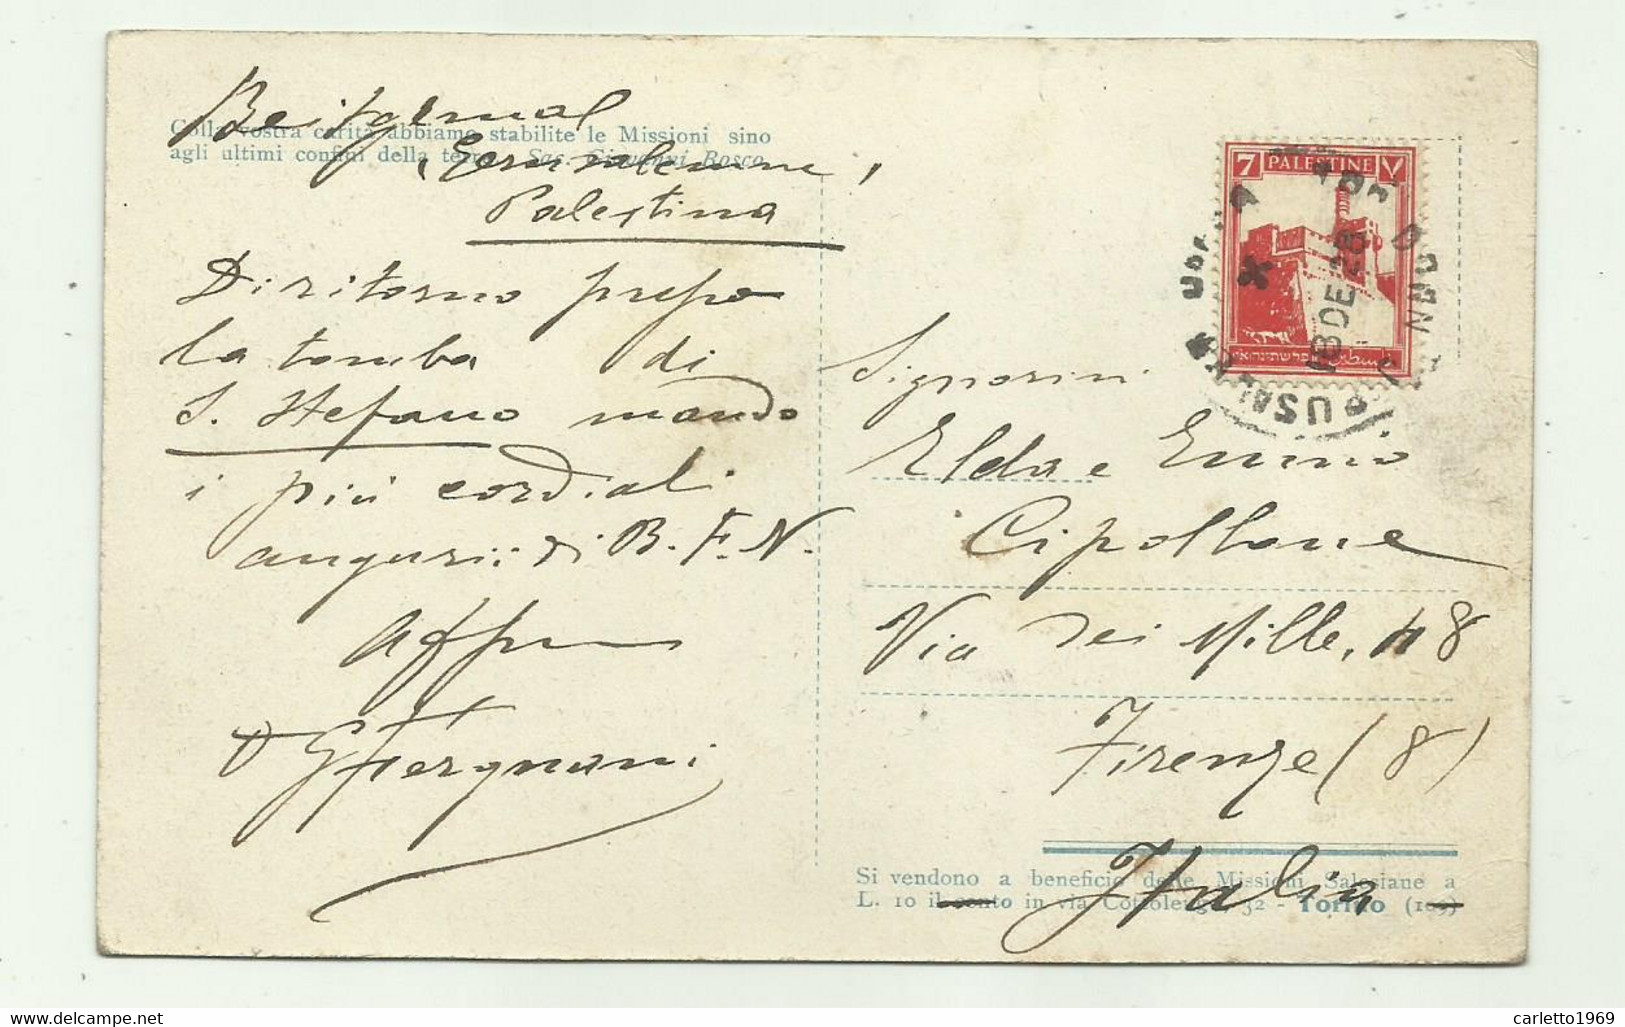 Colla vostra carità abbiamo stabilite le Missioni sino
agli ultimi confini della terra. Sac. Giovanni Bosco.
Beitgemal
(Gerusalemme,
Palestina
Di ritorno presso
la tomba di
S. Stefano mando
i più cordiali
auguri di B. F. N.
Aff
D G Fergnani
7 PALESTINE ٧
فلسطين פלשתינה א״י
JERUSALEM
18 DE 28
Signorini
Elda e Ennio
Cipollone
Via dei Mille, 48
Firenze (8)
Italia
Si vendono a beneficio delle Missioni Salesiane a
L. 10 il cento in via Cottolengo, 32 - Torino (109)
carletto1969